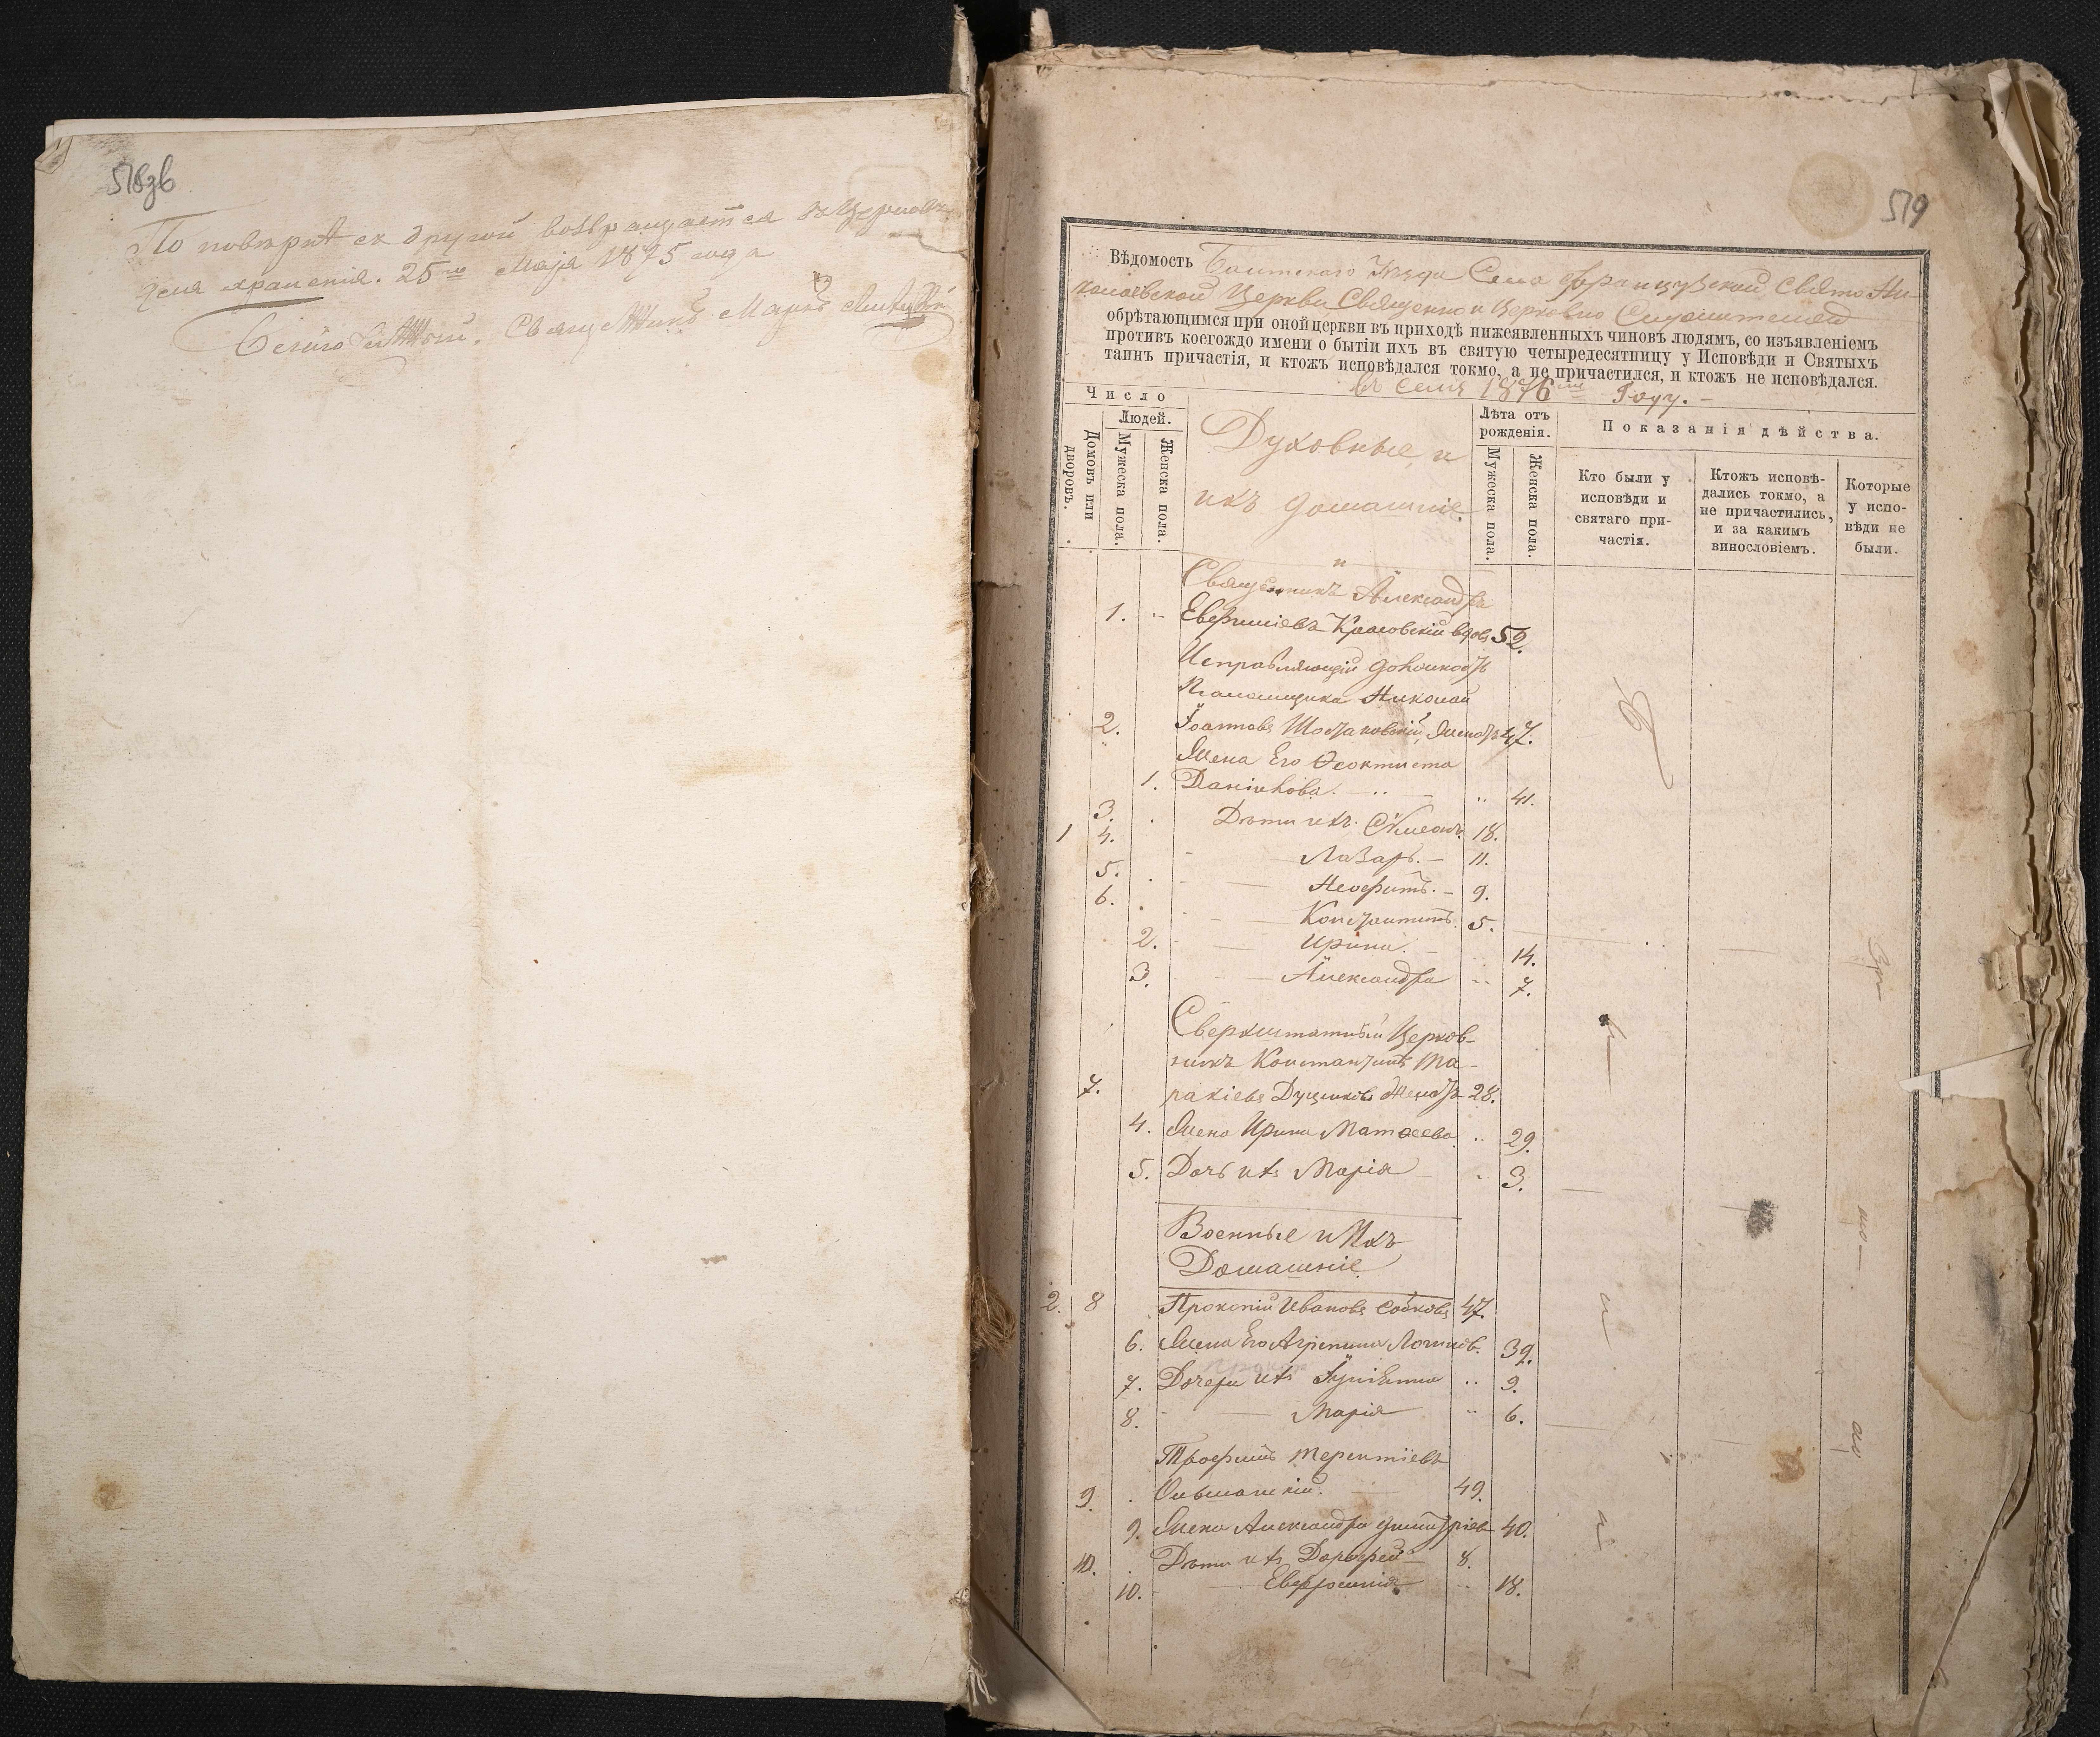 518зв
По повѣркѣ съ другой возвращается въ Церковь
для храненія. 25го Маія 1875 года
Священникъ Маркъ
519
Вѣдомость Уѣзда Села Французской Свято Ни-
колаевской Церкви Священно и Церковно Служителей
обрѣтающимся при оной церкви въ приходѣ нижеявленныхъ чиновъ людямъ, со изъявленіемъ
противъ коегождо имени о бытіи ихъ въ святую четыредесятницу у Исповѣди и Святыхъ
таинъ причастія, и ктожъ исповѣдался токмо, а не причастился, и ктожъ не исповѣдался.
въ семъ 1876мъ Году. –
Число
Людей.
Домовъ или дворовъ.
Мужеска пола.
Женска пола.
Духовные и
ихъ домашніе.
Лѣта отъ
рожденія.
Мужеска пола.
Женска пола.
Показанія дѣйства.
Кто были у
исповѣди и
святаго при-
частія.
Ктожъ исповѣ-
дались токмо, а
не причастились,
и за какимъ
винословіемъ.
Которые
у испо-
вѣди не
были.
Священникъ Александръ
1. Евфиміевъ вдовъ 52.
Исправляющій должность
Псаломщика Николай
2. Іоанновъ женатъ 47.
Жена Его Ѳеоктиста
1. Данилова. 41.
3. Дѣти ихъ. Сѵмеонъ. 18.
1 4. Лазарь. – 11.
5. Неофитъ. – 9.
6. Константинъ. 5.
2. Ирина. 14.
3. Александра 7.
Сверхштатный Церков-
никъ Константинъ Та-
7. рахіевъ женатъ 28.
4. Жена Ирина Матѳеева 29.
5. Дочь ихъ Марія 3.
Военные и Ихъ
Домашніе.
2. 8 Прокопій Ивановъ 47.
6. Жена Его Агрепина 39.
7. Дочери ихъ Іуліанна 9.
8. Марія 6.
Трофимъ Терентіевъ
9. Ольшанскій. 49.
9. Жена Александра Димитріев. 40.
10. Дѣти ихъ Дорофей 8.
10. Евфросинія 18.